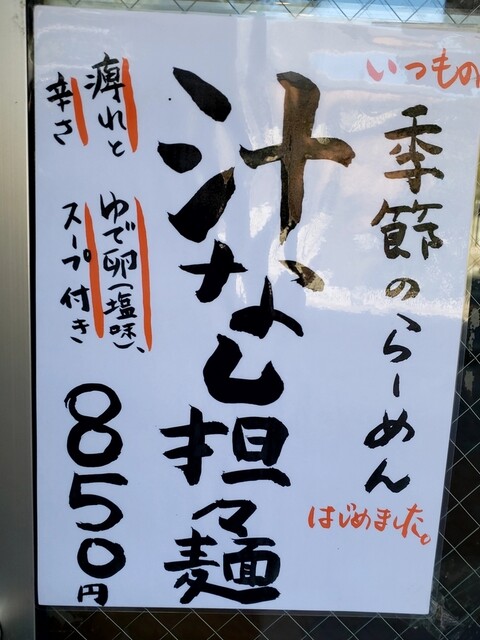 いつもの
季節のらーめん
はじめました。
汁なし担々麺
痺れと
辛さ
ゆで卵(塩味)、
スープ付き
850円